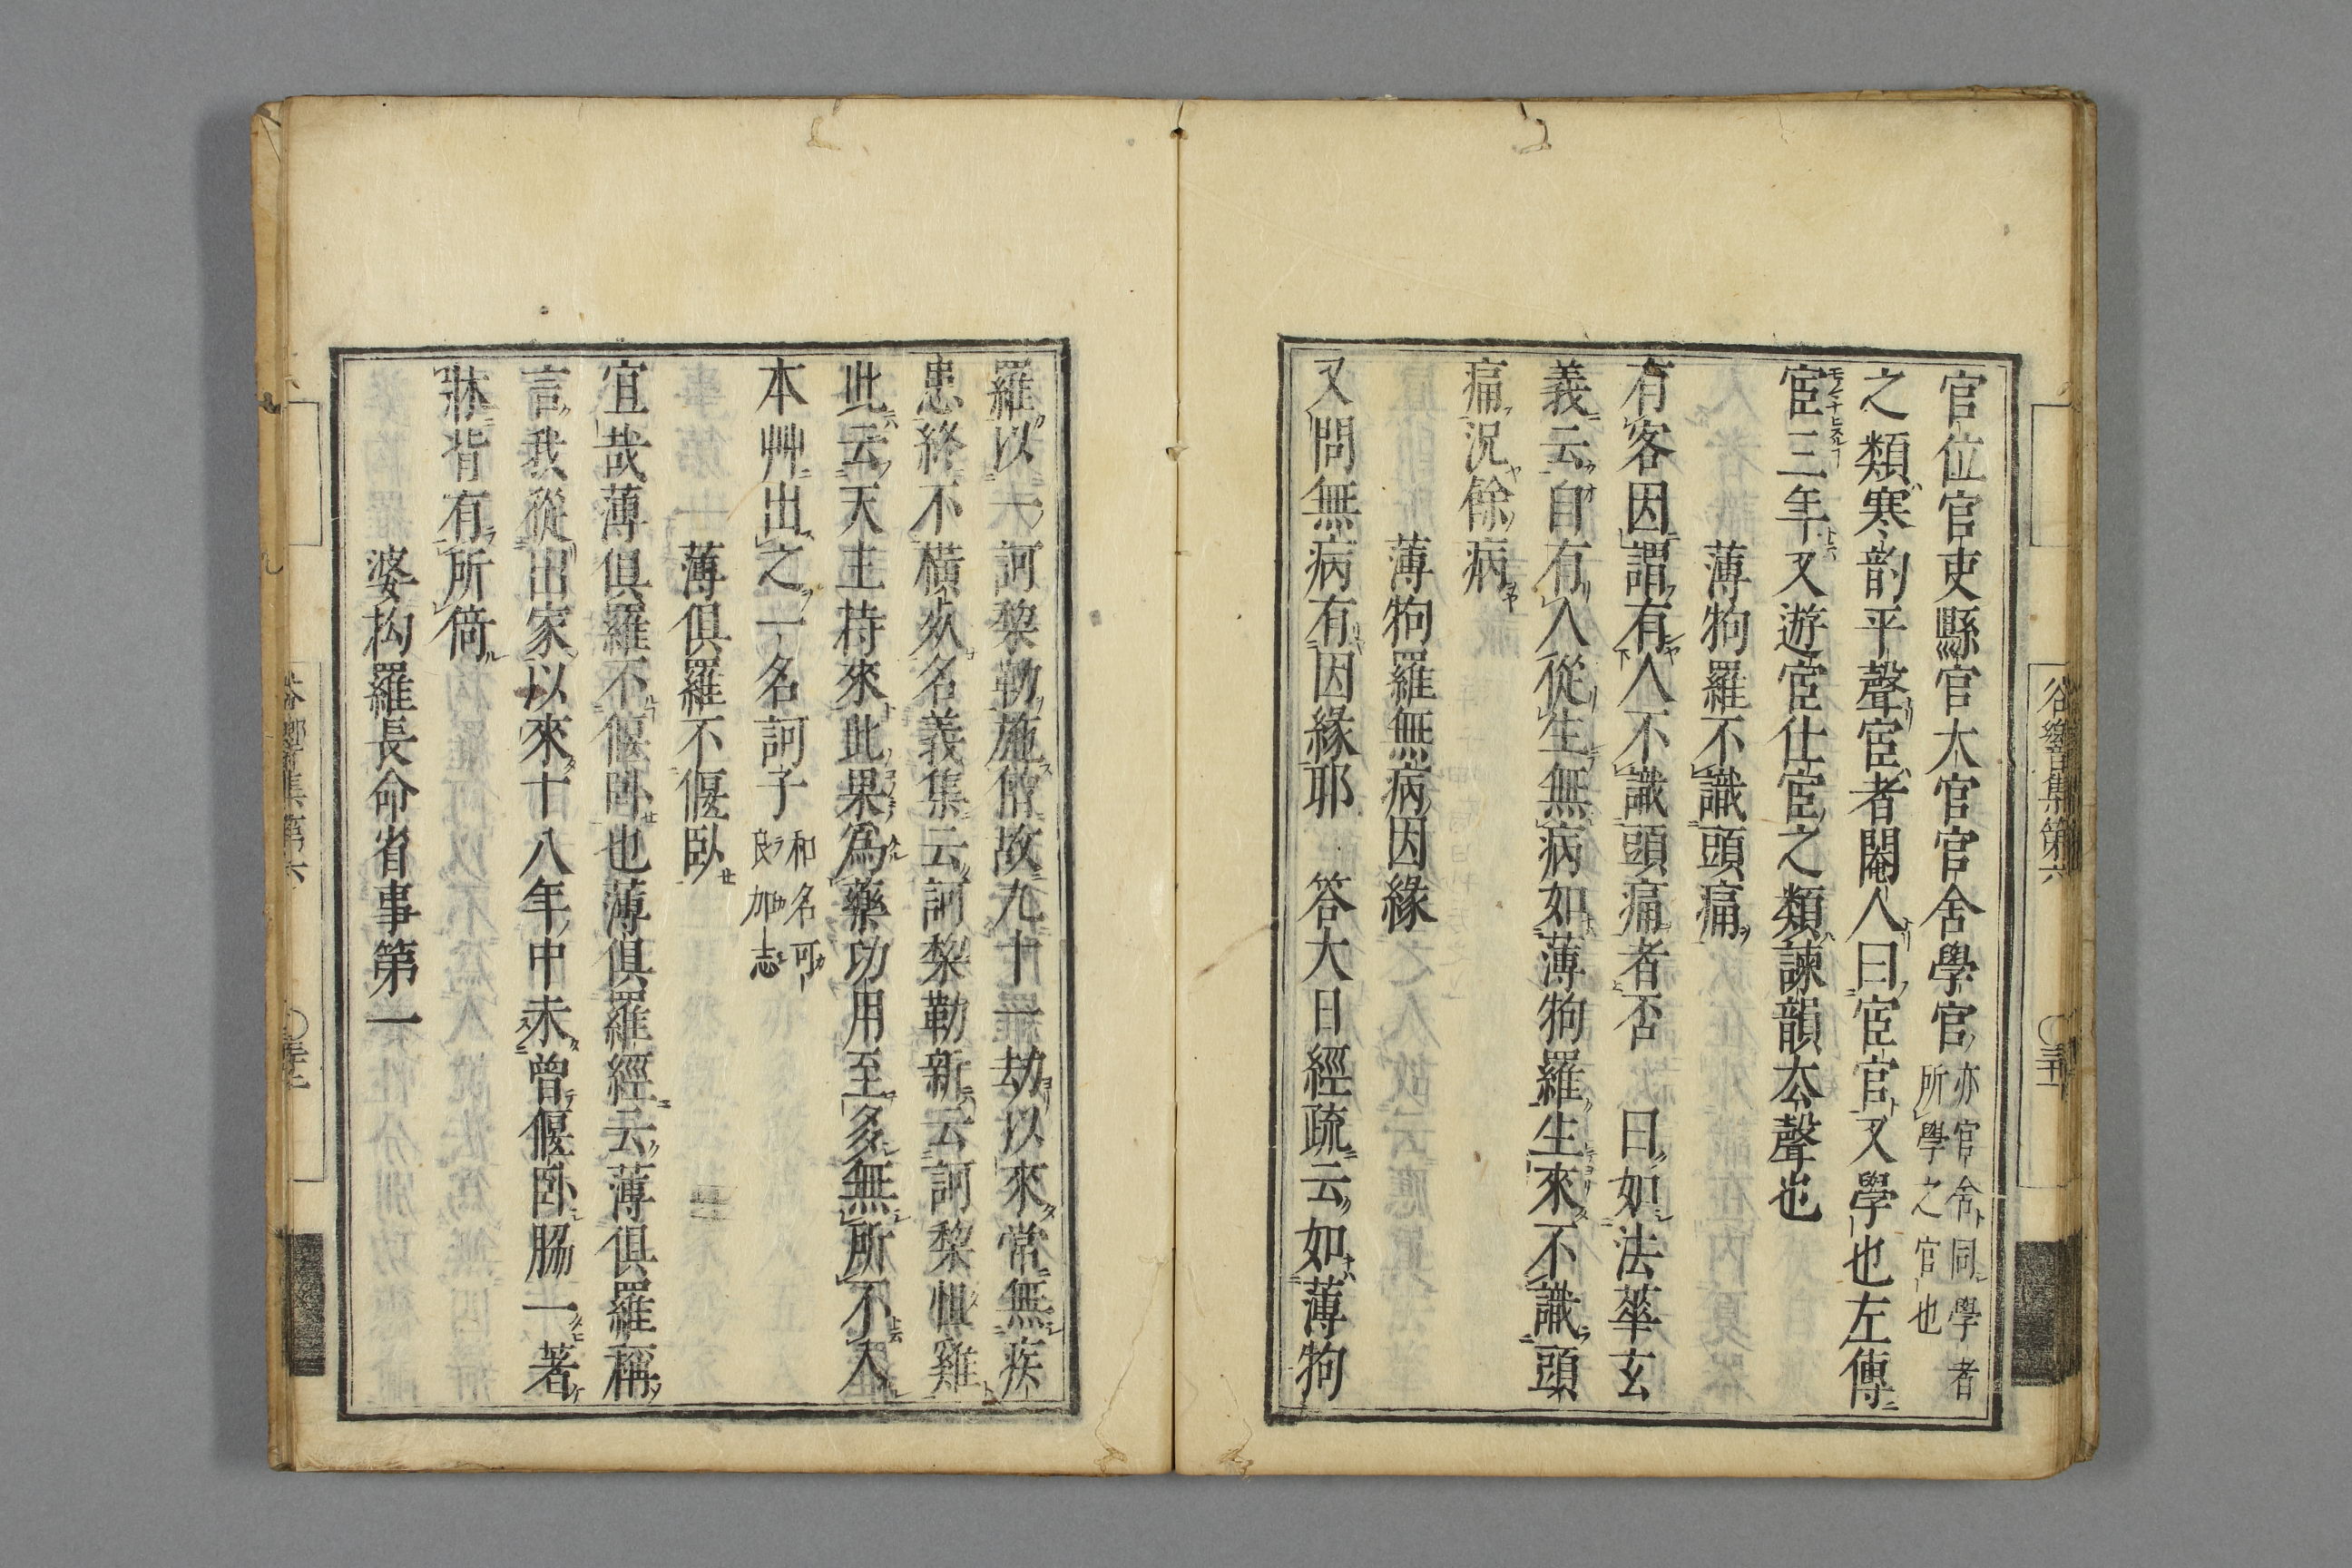 官位官吏縣官大官官舍學官亦官舍同學者所學之官也
之類寒韵平聲宦者閹人曰宦官又學也左傳
宦三年又遊宦仕宦之類諫韻去聲也
薄狗羅不識頭痛
有客因謂有人不識頭痛者否 曰如法華玄
義云自有人從生無病如薄狗羅生來不識頭
痛況餘病
薄狗羅無病因緣
又問無病有因緣耶 答大日經疏云如薄狗
羅以一訶黎勒施僧故九十一劫以來常無疾
患終不橫死名義集云訶黎勒新云訶黎怛雞
此云天主持來此果為藥功用至多無所不入
本艸出之一名訶子和名可良加志
薄俱羅不偃臥
宜哉薄俱羅不偃臥也薄俱羅經云薄俱羅稱
言我從出家以來十八年中未曾偃臥脇一著
牀背有所倚
婆拘羅長命省事第一
谷響集第六